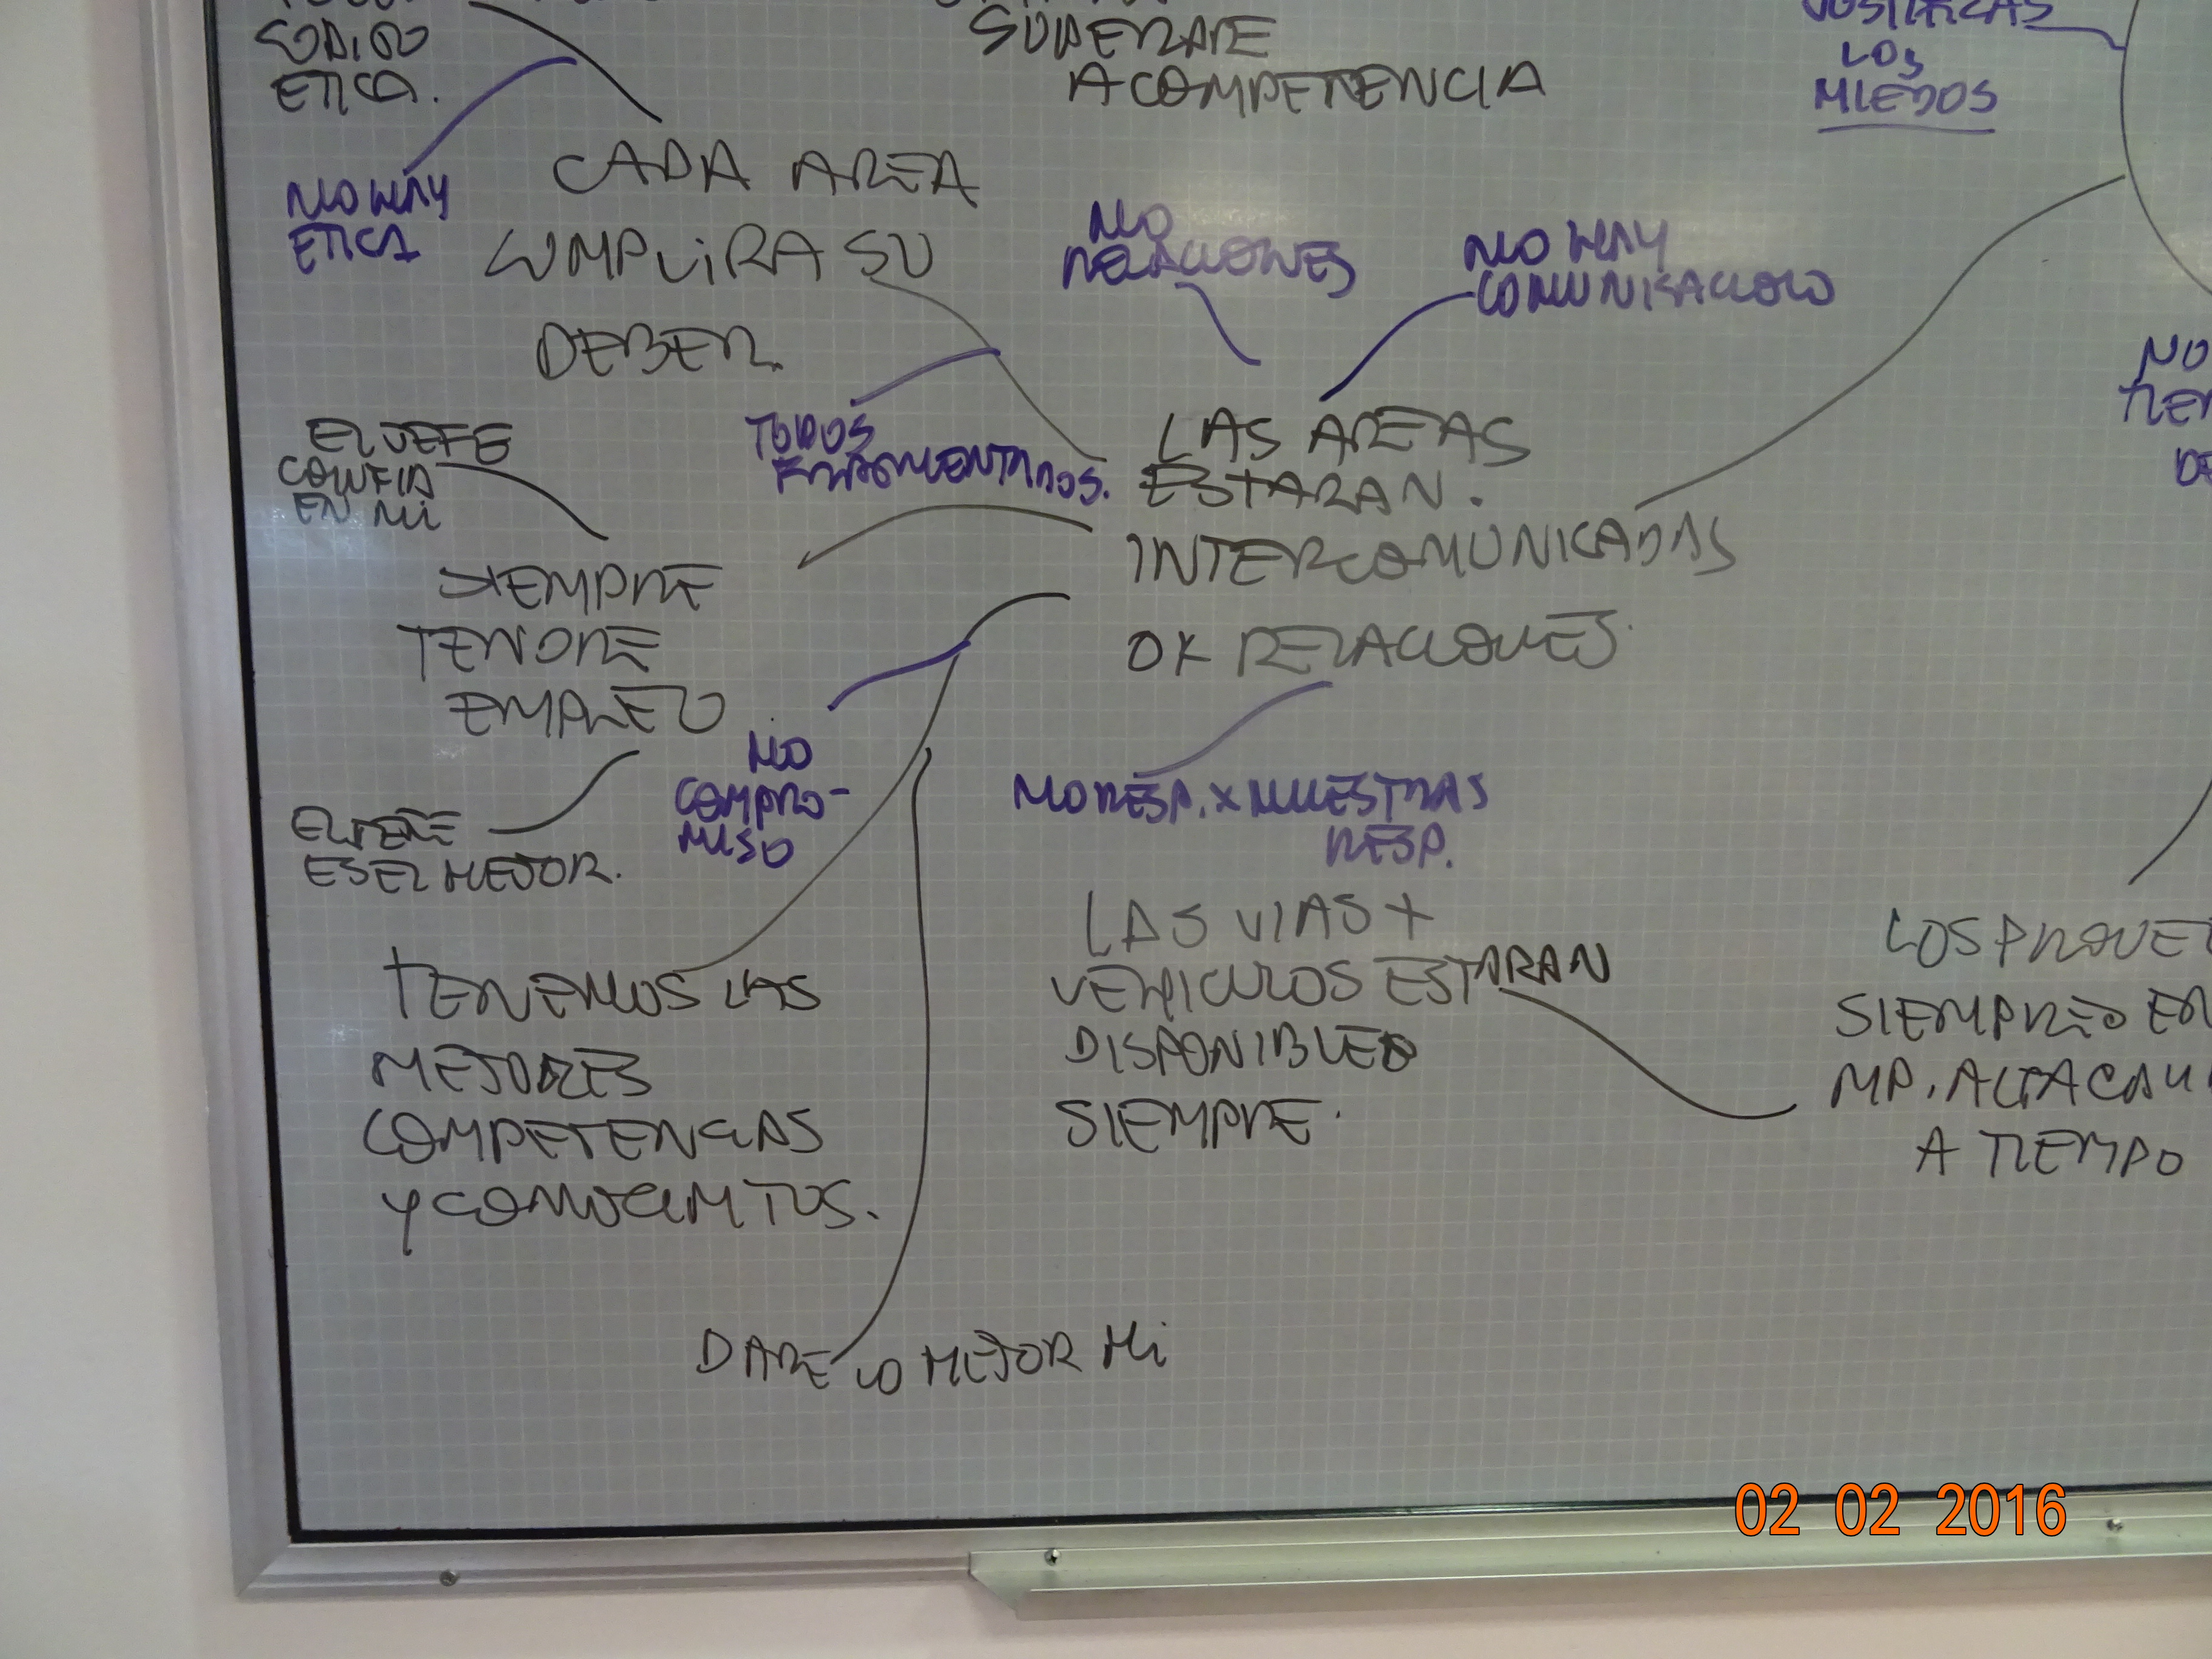 CODIGO
ETICA.
SUPERARE
A COMPETENCIA
LOS
MIEDOS
NO HAY
ETICA
CADA AREA
CUMPLIRA SU
DEBER.
NO
RELACIONES
NO HAY
COMUNICACION
NO
EL JEFE
CONFIA
EN Mi
TODOS
FRAGMENTADOS.
LAS AREAS
ESTARAN.
INTERCOMUNICADAS
OK RELACIONES.
DE
SIEMPRE
TENDRE
EMPLEO
NO
COMPRO-
MISO
NO RESP. X NUESTRAS
RESP.
EL JEFE
ES EL MEJOR.
TENEMOS LAS
MEJORES
COMPETENCIAS
Y CONOCIMTOS.
LAS VIAS +
VEHICULOS ESTARAN
DISPONIBLES
SIEMPRE.
LOS PROVE
SIEMPRE EN
MP. ALTA CALI
A TIEMPO
DARE LO MEJOR Mi
02 02 2016